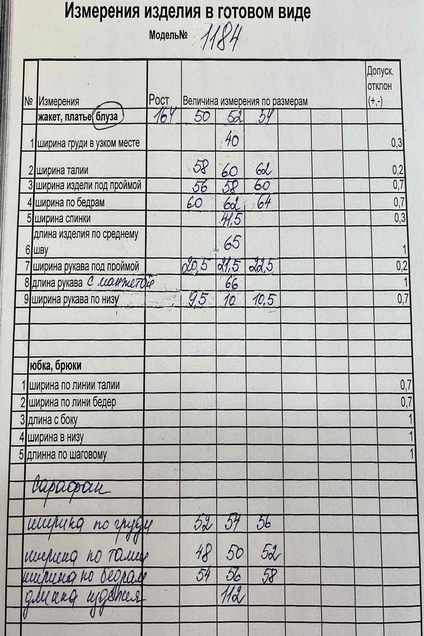 Измерения изделия в готовом виде
Модель№ 1184
№ Измерения Рост Величина измерения по размерам Допуск. отклон (+,-)
жакет, платье, блуза 164 50 52 54
1 ширина груди в узком месте 40 0,3
2 ширина талии 58 60 62 0,2
3 ширина издели под проймой 56 58 60 0,7
4 ширина по бедрам 60 62 64 0,7
5 ширина спинки 41,5 0,3
длина изделия по среднему
6 шву 65 1
7 ширина рукава под проймой 20,5 21,5 22,5 0,2
8 длина рукава с манжетой 66 1
9 ширина рукава по низу 9,5 10 10,5 0,7
юбка, брюки
1 ширина по линии талии 0,7
2 ширина по лини бедер 0,7
3 длина с боку 1
4 ширина в низу 1
5 длинна по шаговому 1
Сарафан
ширина по груди 52 54 56
ширина по талии 48 50 52
ширина по бедрам 54 56 58
длина изделия 112